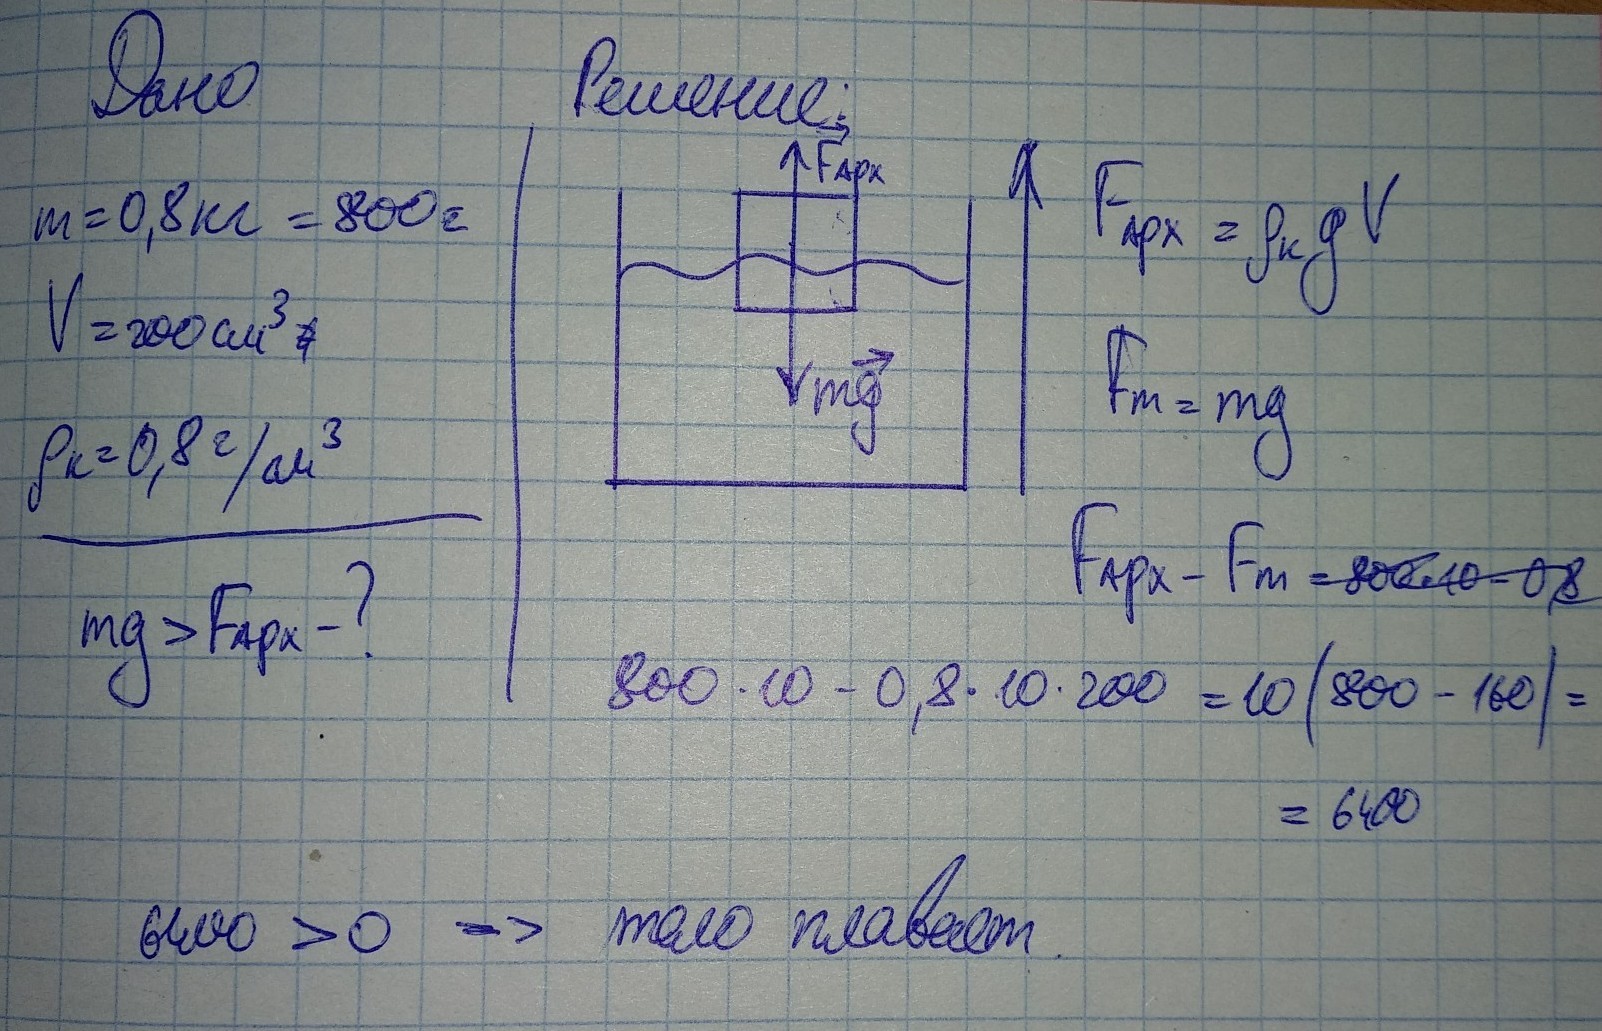 Дано
m = 0,8 кг = 800 г
V = 200 см³
ρк = 0,8 г/см³
mg > Fарх - ?
Решение:
Fарх
mg
Fарх = ρк g V
Fт = mg
Fарх - Fт = 800·10 - 0,8
800 · 10 - 0,8 · 10 · 200 = 10 (800 - 160) =
= 6400
6400 > 0 => тело плавает.